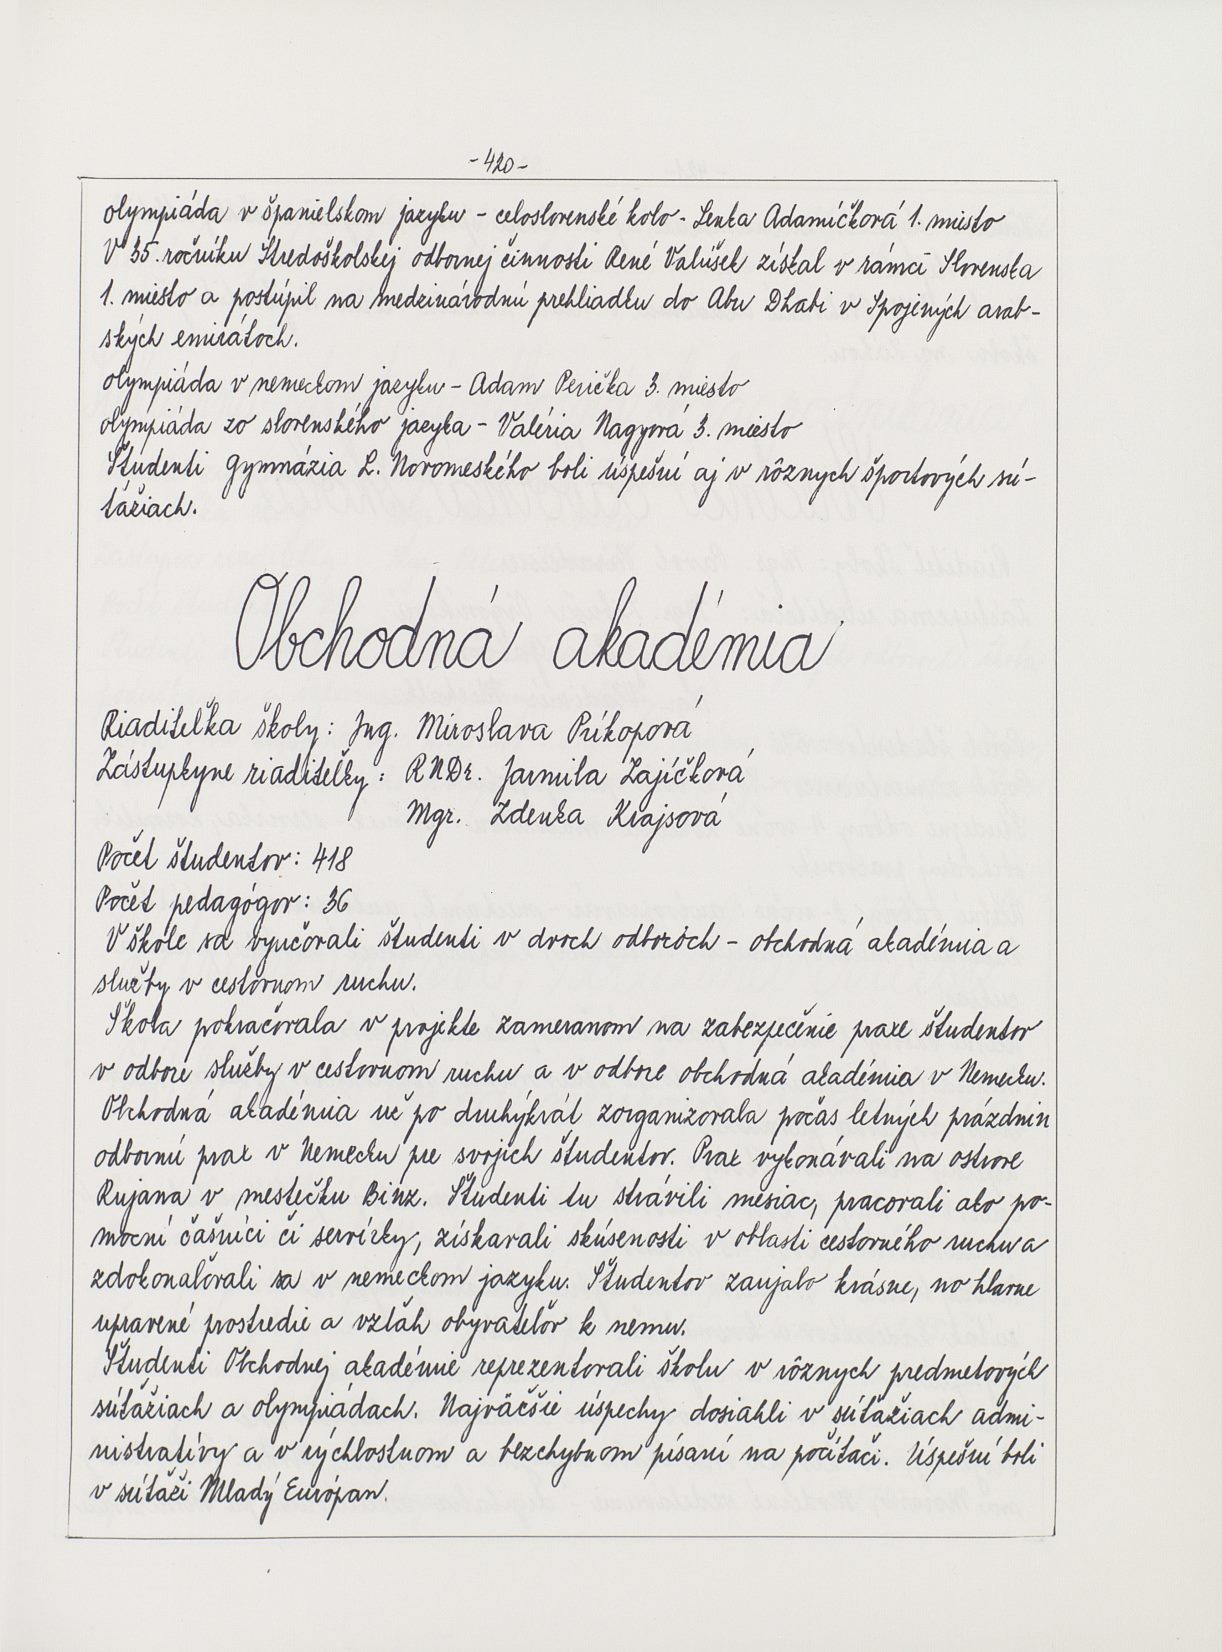 -420-
olympiáda v španielskom jazyku - celoslovenské kolo - Lenka Adamíčková 1. miesto
V 35. ročníku Stredoškolskej odbornej činnosti René Valúšek získal v rámci Slovenska
1. miesto a postúpil na medzinárodnú prehliadku do Abu Dhabi v Spojených arab-
ských emirátoch.
olympiáda v nemeckom jazyku - Adam Perička 3. miesto
olympiáda zo slovenského jazyka - Valéria Nagyová 3. miesto
Študenti Gymnázia L. Novomeského boli úspešní aj v rôznych športových sú-
ťažiach.
Obchodná akadémia
Riaditeľka školy: Ing. Miroslava Príkopová
Zástupkyne riaditeľky: RNDr. Jarmila Zajíčková
Mgr. Zdenka Krajsová
Počet študentov: 418
Počet pedagógov: 36
V škole sa vyučovali študenti v dvoch odboroch - obchodná akadémia a
služby v cestovnom ruchu.
Škola pokračovala v projekte zameranom na zabezpečenie praxe študentov
v odbore služby v cestovnom ruchu a v odbore obchodná akadémia v Nemecku.
Obchodná akadémia už po druhýkrát zorganizovala počas letných prázdnin
odbornú prax v Nemecku pre svojich študentov. Prax vykonávali na ostrove
Rujana v mestečku Binz. Študenti tu strávili mesiac, pracovali ako po-
mocní čašníci či servírky, získavali skúsenosti v oblasti cestovného ruchu a
zdokonaľovali sa v nemeckom jazyku. Študentov zaujalo krásne, no hlavne
upravené prostredie a vzťah obyvateľov k nemu.
Študenti Obchodnej akadémie reprezentovali školu v rôznych predmetových
súťažiach a olympiádach. Najväčšie úspechy dosiahli v súťažiach admi-
nistratívy a v rýchlostnom a bezchybnom písaní na počítači. Úspešní boli
v súťaži Mladý Európan.